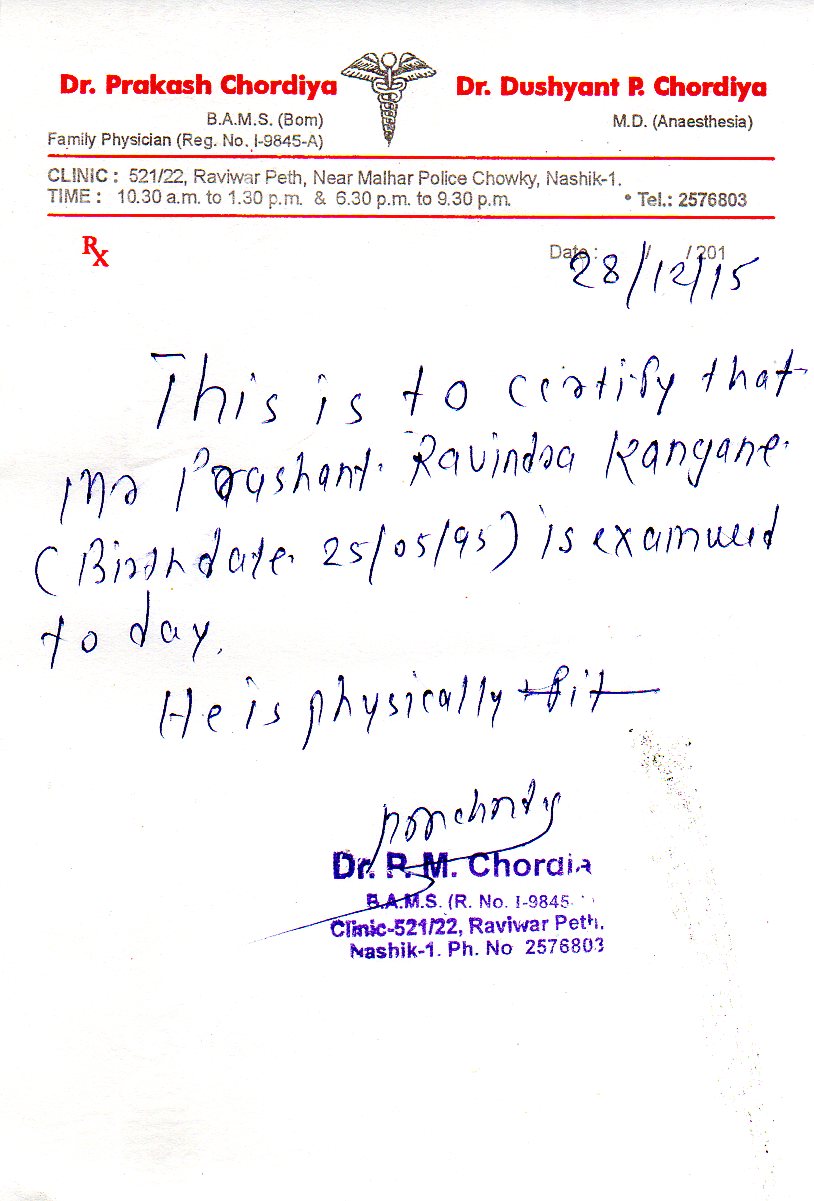 Dr. Prakash Chordiya
B.A.M.S. (Bom)
Family Physician (Reg. No. I-9845-A)
Dr. Dushyant P. Chordiya
M.D. (Anaesthesia)
CLINIC : 521/22, Raviwar Peth, Near Malhar Police Chowky, Nashik-1.
TIME : 10.30 a.m. to 1.30 p.m. & 6.30 p.m. to 9.30 p.m. • Tel.: 2576803
Rx
Date : / / 201
28/12/15
This is to certify that
Mr Prashant. Ravindra Kangane.
(Birthdate. 25/05/95) is examined
to day.
He is physically fit
Dr. P. M. Chordia
B.A.M.S. (R. No. I-9845-
Clinic-521/22, Raviwar Peth,
Nashik-1. Ph. No 2576803